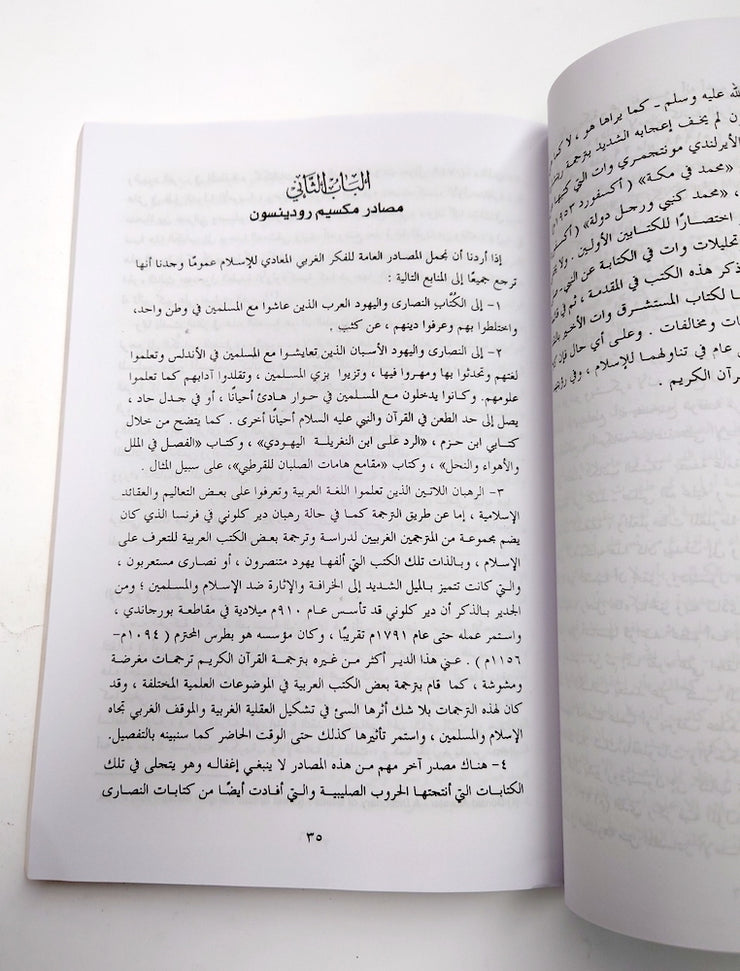 الباب الثاني
مصادر مكسيم رودينسون
إذا أردنا أن نجمل المصادر العامة للفكر الغربي المعادي للإسلام عمومًا وجدنا أنها
ترجع جميعًا إلى المنابع التالية :
١- إلى الكُتَّاب النصارى واليهود العرب الذين عاشوا مع المسلمين في وطن واحد،
واختلطوا بهم وعرفوا دينهم ، عن كثب .
٢- إلى النصارى واليهود الأسبان الذين تعايشوا مع المسلمين في الأندلس وتعلموا
لغتهم وتحدثوا بها ومهروا فيها ، وتزيوا بزي المسلمين ، وتقلدوا آدابهم كما تعلموا
علومهم. وكانوا يدخلون مع المسلمين في حوار هادئ أحيانًا ، أو في جدل حاد ،
يصل إلى حد الطعن في القرآن والنبي عليه السلام أحيانًا أخرى . كما يتضح من خلال
كتابي ابن حزم ، «الرد على ابن النغريلة اليهودي» ، وكتاب «الفصل في الملل
والأهواء والنحل» ، وكتاب «مقامع هامات الصلبان للقرطبي»، على سبيل المثال .
٣- الرهبان اللاتين الذين تعلموا اللغة العربية وتعرفوا على بعض التعاليم والعقائد
الإسلامية ، إما عن طريق الترجمة كما في حالة رهبان دير كلوني في فرنسا الذي كان
يضم مجموعة من المترجمين الغربيين لدراسة وترجمة بعض الكتب العربية للتعرف على
الإسلام ، وبالذات تلك الكتب التي ألفها يهود متنصرون ، أو نصارى مستعربون ،
والتي كانت تتميز بالميل الشديد إلى الخرافة والإثارة ضد الإسلام والمسلمين ؛ ومن
الجدير بالذكر أن دير كلوني قد تأسس عام ٩١٠م ميلادية في مقاطعة بورجاندي ،
واستمر عمله حتى عام ١٧٩١م تقريبًا ، وكان مؤسسه هو بطرس المحترم ( ١٠٩٤م-
١١٥٦م ) . عني هذا الدير أكثر من غيره بترجمة القرآن الكريم ترجمات مغرضة
ومشوشة ، كما قام بترجمة بعض الكتب العربية في الموضوعات العلمية المختلفة ، وقد
كان لهذه الترجمات بلا شك أثرها السئ في تشكيل العقلية الغربية والموقف الغربي تجاه
الإسلام والمسلمين ، واستمر تأثيرها كذلك حتى الوقت الحاضر كما سنبينه بالتفصيل.
٤- هناك مصدر آخر مهم من هذه المصادر لا ينبغي إغفاله وهو يتجلى في تلك
الكتابات التي أنتجتها الحروب الصليبية والتي أفادت أيضًا من كتابات النصارى
٣٥
الله عليه وسلم - كما يراها هو ، لا كما
لم يخف إعجابه الشديد بترجمة
الأيرلندي مونتجمري وات التي كتبها
«محمد في مكة» (أكسفورد ١٩٥٣
، «محمد كنبي ورجل دولة» (أكسفو
اختصارًا للكتابين الأولين .
تحليلات وات في الكتابة عن النبي
ذكر هذه الكتب في المقدمة ، ثم في
لكتاب المستشرق وات الأخير
ومخالفات . وعلى أي حال فإن
عام في تناولهما للإسلام ، وفي
القرآن الكريم .